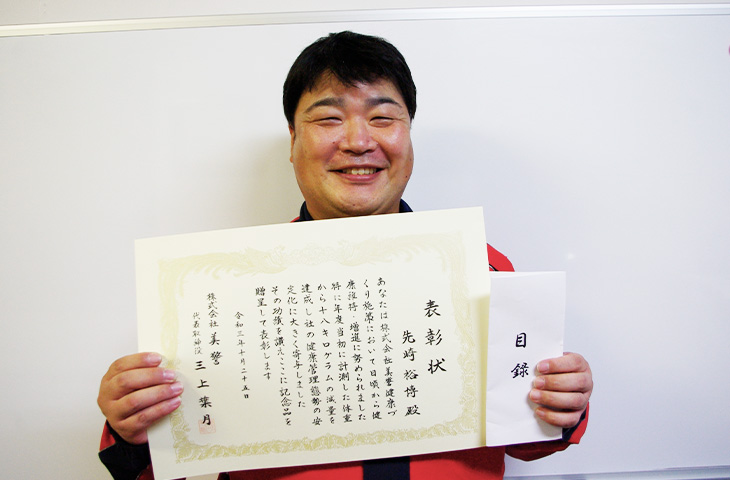 表彰状
先崎裕博殿
あなたは株式会社美警健康づ
くり施策において日頃から健
康維持・増進に努められました
特に年度当初に計測した体重
から十八キログラムの減量を
達成し社の健康管理態勢の安
定化に大きく寄与しました
その功績を讃えここに記念品を
贈呈して表彰します
令和三年十月二十五日
株式会社美警
代表取締役 三上葉月
目録